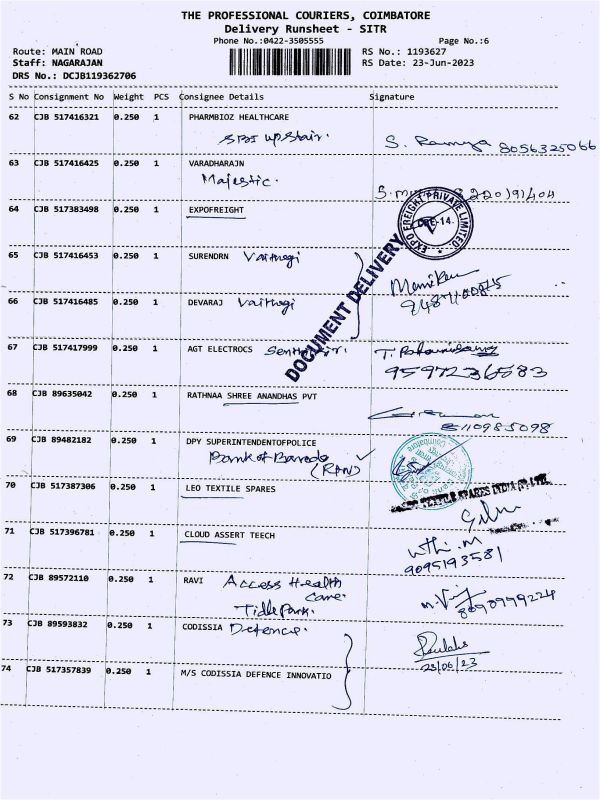 THE PROFESSIONAL COURIERS, COIMBATORE
Delivery Runsheet - SITR
Phone No.:0422-3505555 Page No.:6
Route: MAIN ROAD RS No.: 1193627
Staff: NAGARAJAN RS Date: 23-Jun-2023
DRS No.: DCJB119362706
S No Consignment No Weight PCS Consignee Details Signature
62 CJB 517416321 0.250 1 PHARMBIOZ HEALTHCARE
SBI upstair. S. Ramya 8056325066
63 CJB 517416425 0.250 1 VARADHARAJN
Majestic.
64 CJB 517383498 0.250 1 EXPOFREIGHT
EXPO FREIGHT PRIVATE LIMITED
CBE-14.
DOCUMENT DELIVERY
65 CJB 517416453 0.250 1 SURENDRN Vaithegi
66 CJB 517416485 0.250 1 DEVARAJ Vaithegi
67 CJB 517417999 0.250 1 AGT ELECTROCS
9597236583
68 CJB 89635042 0.250 1 RATHNAA SHREE ANANDHAS PVT
8110985098
69 CJB 89482182 0.250 1 DPY SUPERINTENDENTOFPOLICE
Bank of Baroda
70 CJB 517387306 0.250 1 LEO TEXTILE SPARES
TEXTILE SPARES INDIA (P) LTD.
71 CJB 517396781 0.250 1 CLOUD ASSERT TEECH
9095193581
72 CJB 89572110 0.250 1 RAVI Access Health
Care.
Tidle Park.
8090999224
73 CJB 89593832 0.250 1 CODISSIA Defence.
23/06/23
74 CJB 517357839 0.250 1 M/S CODISSIA DEFENCE INNOVATIO